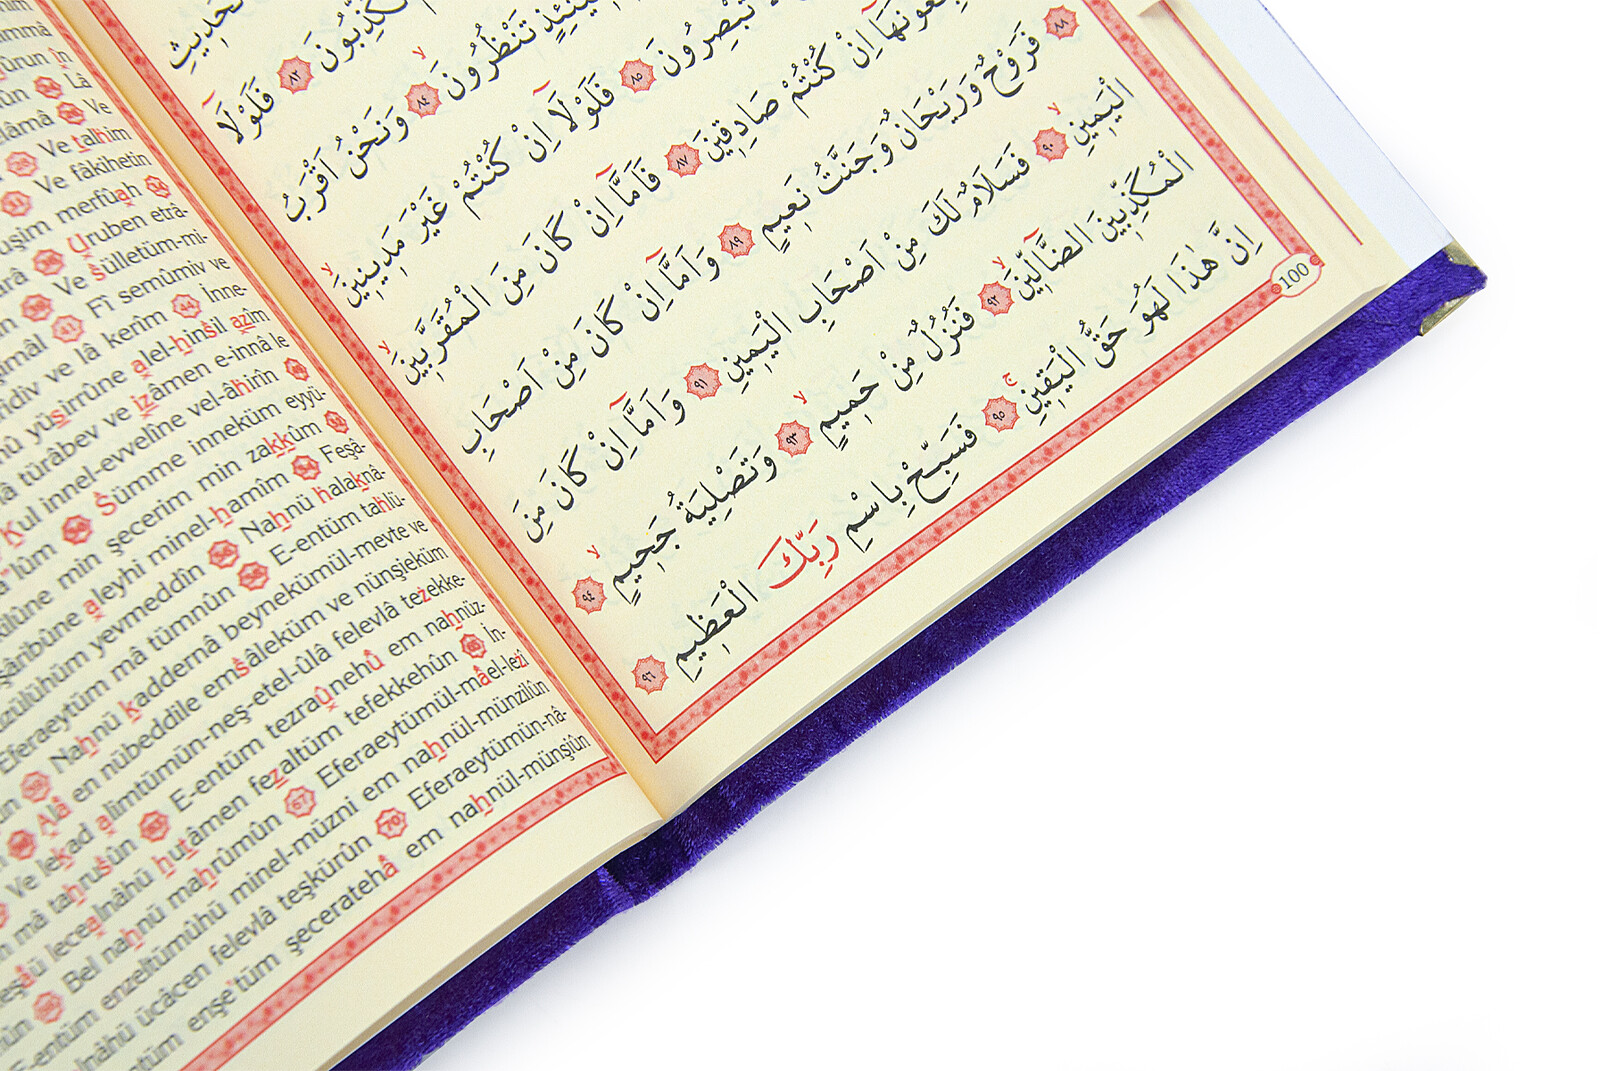 الْحَدِيثِ
تُكَذِّبُونَ ٨٢ فَلَوْلَٓا
تَنْظُرُونَ ٨٤ وَنَحْنُ اَقْرَبُ
تُبْصِرُونَ ٨٥ فَلَوْلَٓا اِنْ كُنْتُمْ غَيْرَ مَدِينِينَ
اِنْ كُنْتُمْ صَادِقِينَ ٨٧ فَاَمَّٓا اِنْ كَانَ مِنَ الْمُقَرَّبِينَ
٨٨ فَرَوْحٌ وَرَيْحَانٌ وَجَنَّتُ نَعِيمٍ ٨٩ وَاَمَّٓا اِنْ كَانَ مِنْ اَصْحَابِ
الْيَمِينِ ٩٠ فَسَلَامٌ لَكَ مِنْ اَصْحَابِ الْيَمِينِ ٩١ وَاَمَّٓا اِنْ كَانَ مِنَ
الْمُكَذِّبِينَ الضَّٓالِّينَ ٩٢ فَنُزُلٌ مِنْ حَمِيمٍ ٩٣ وَتَصْلِيَةُ جَحِيمٍ ٩٤
اِنَّ هٰذَا لَهُوَ حَقُّ الْيَقِينِ ٩٥ فَسَبِّحْ بِاسْمِ رَبِّكَ الْعَظِيمِ ٩٦
100
Lâ
Ve
Ve talhim
Ve fâkihetin
merfûah
Uruben etrâ-
Ve sülletüm-mi-
41 Fî semûmiv ve
ve lâ kerîm 44 İnne-
yüsirrûne alel-hinsil azîm
türâbev ve izâmen e-innâ le
Kul innel-evvelîne vel-âhirîn
Sümme inneküm eyyü-
min şecerim min zakkûm Feşâ-
aleyhi minel-hamîm Nahnü halaknâ-
yevmeddîn E-entüm tahlü-
Eferaeytüm mâ tümnûn
Nahnü kaddernâ beynekümül-mevte ve
Alâ en nübeddile emsâleküm ve nünşieküm
Ve lekad alimtümün-neş-etel-ûlâ felevlâ tezekke-
mâ tahrusûn E-entüm tezraûnehû em nahnüz-
lecealnâhü hutâmen fezaltüm tefekkehûn İn-
Bel nahnü mahrûmûn 67 Eferaeytümül-mâel-lezî
E-entüm enzeltümûhü minel-müzni em nahnül-münzilûn
ücâcen felevlâ teşkürûn 70 Eferaeytümün-nâ-
enşe'tüm şeceratehâ em nahnül-münşiûn